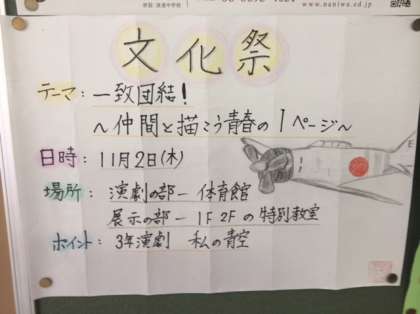 www.naniwa.ed.jp
文化祭
テーマ:一致団結!
〜仲間と描こう青春の1ページ〜
日時:11月2日(木)
場所:演劇の部ー体育館
展示の部ー1F 2Fの特別教室
ポイント:3年演劇 私の青空